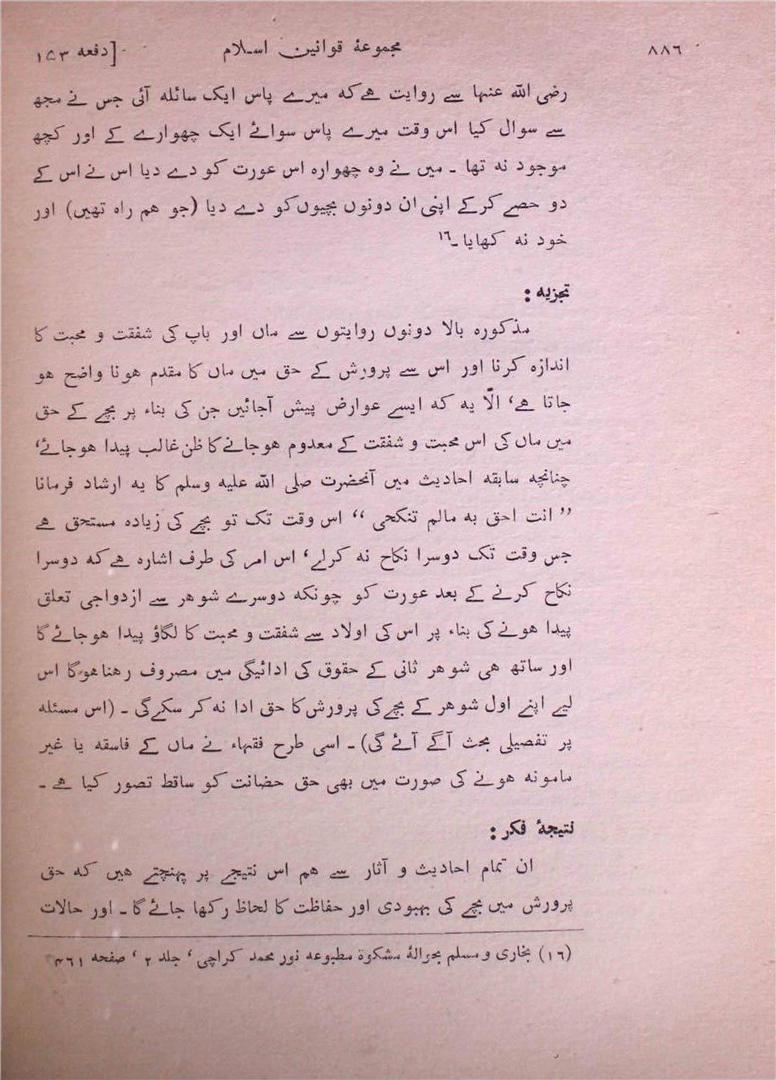 ۸۸٦ مجموعۂ قوانین اسلام [دفعہ ۱۵۳
رضی اللہ عنہا سے روایت ہے کہ میرے پاس ایک سائلہ آئی جس نے مجھ
سے سوال کیا اس وقت میرے پاس سوائے ایک چھوارے کے اور کچھ
موجود نہ تھا ۔ میں نے وہ چھوارہ اس عورت کو دے دیا اس نے اس کے
دو حصے کرکے اپنی ان دونوں بچیوں کو دے دیا (جو ہم راہ تھیں) اور
خود نہ کھایا ۔۱٦
تجزیہ :
مذکورہ بالا دونوں روایتوں سے ماں اور باپ کی شفقت و محبت کا
اندازہ کرنا اور اس سے پرورش کے حق میں ماں کا مقدم ہونا واضح ہو
جاتا ہے، الّا یہ کہ ایسے عوارض پیش آجائیں جن کی بناء پر بچے کے حق
میں ماں کی اس محبت و شفقت کے معدوم ہوجانے کا ظن غالب پیدا ہوجائے،
چنانچہ سابقہ احادیث میں آنحضرت صلی اللہ علیہ وسلم کا یہ ارشاد فرمانا
” انت احق بہ مالم تنکحی “ اس وقت تک تو بچے کی زیادہ مستحق ہے
جس وقت تک دوسرا نکاح نہ کرلے، اس امر کی طرف اشارہ ہے کہ دوسرا
نکاح کرنے کے بعد عورت کو چونکہ دوسرے شوہر سے ازدواجی تعلق
پیدا ہونے کی بناء پر اس کی اولاد سے شفقت و محبت کا لگاؤ پیدا ہوجائے گا
اور ساتھ ہی شوہر ثانی کے حقوق کی ادائیگی میں مصروف رہنا ہوگا اس
لیے اپنے اول شوہر کے بچے کی پرورش کا حق ادا نہ کر سکے گی ۔ (اس مسئلہ
پر تفصیلی بحث آگے آئے گی) ۔ اسی طرح فقہاء نے ماں کے فاسقہ یا غیر
مامونہ ہونے کی صورت میں بھی حق حضانت کو ساقط تصور کیا ہے ۔
نتیجۂ فکر :
ان تمام احادیث و آثار سے ہم اس نتیجے پر پہنچتے ہیں کہ حق
پرورش میں بچے کی بہبودی اور حفاظت کا لحاظ رکھا جائے گا ۔ اور حالات
(۱٦) بخاری و مسلم بحوالۂ مشکوۃ مطبوعہ نور محمد کراچی، جلد ۲ ، صفحہ ۴٦۱